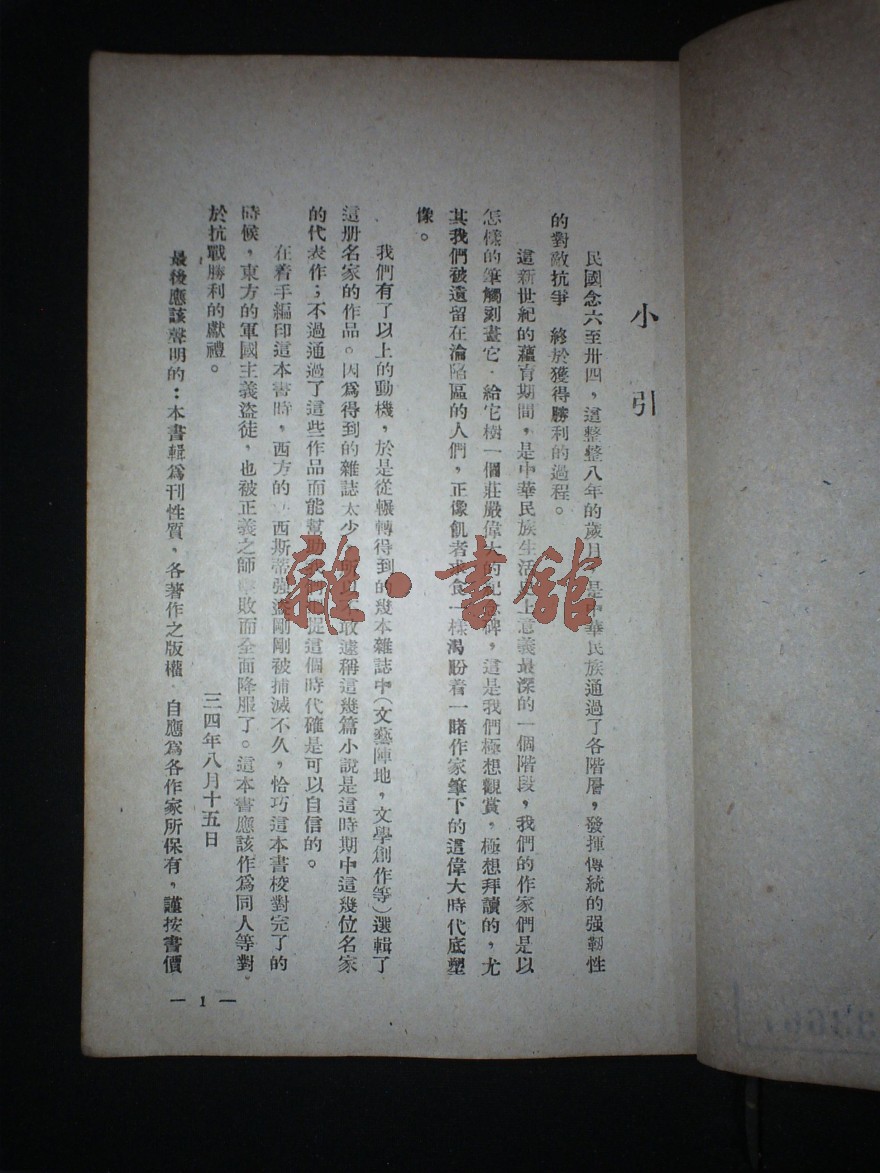 小引
民國念六至卅四，這整整八年的歲月，是中華民族通過了各階層，發揮傳統的强韌性
的對敵抗爭　終於獲得勝利的過程。
這新世紀的蘊育期間，是中華民族生活史上意義最深的一個階段，我們的作家們是以
怎樣的筆觸刻畫它．給它樹一個莊嚴偉大的紀念碑，這是我們極想觀賞，極想拜讀的，尤
其我們被遺留在淪陷區的人們，正像飢者求食一樣渴盼着一睹作家筆下的這偉大時代底塑
像。
我們有了以上的動機，於是從輾轉得到的幾本雜誌中（文藝陣地，文學創作等）選輯了
這册名家的作品。因爲得到的雜誌太少，所以不敢遽稱這幾篇小說是這時期中這幾位名家
的代表作；不過通過了這些作品而能幫助我們捉這個時代確是可以自信的。
在着手編印這本書時，西方的　西斯蒂强盜剛剛被捕滅不久，恰巧這本書校對完了的
時候，東方的軍國主義盜徒，也被正義之師擊敗而全面降服了。這本書應該作爲同人等對
於抗戰勝利的獻禮。
三四年八月十五日
最後應該聲明的：本書輯爲刊性質，各著作之版權．自應爲各作家所保有，謹按書價
— 1 —
雜·書館